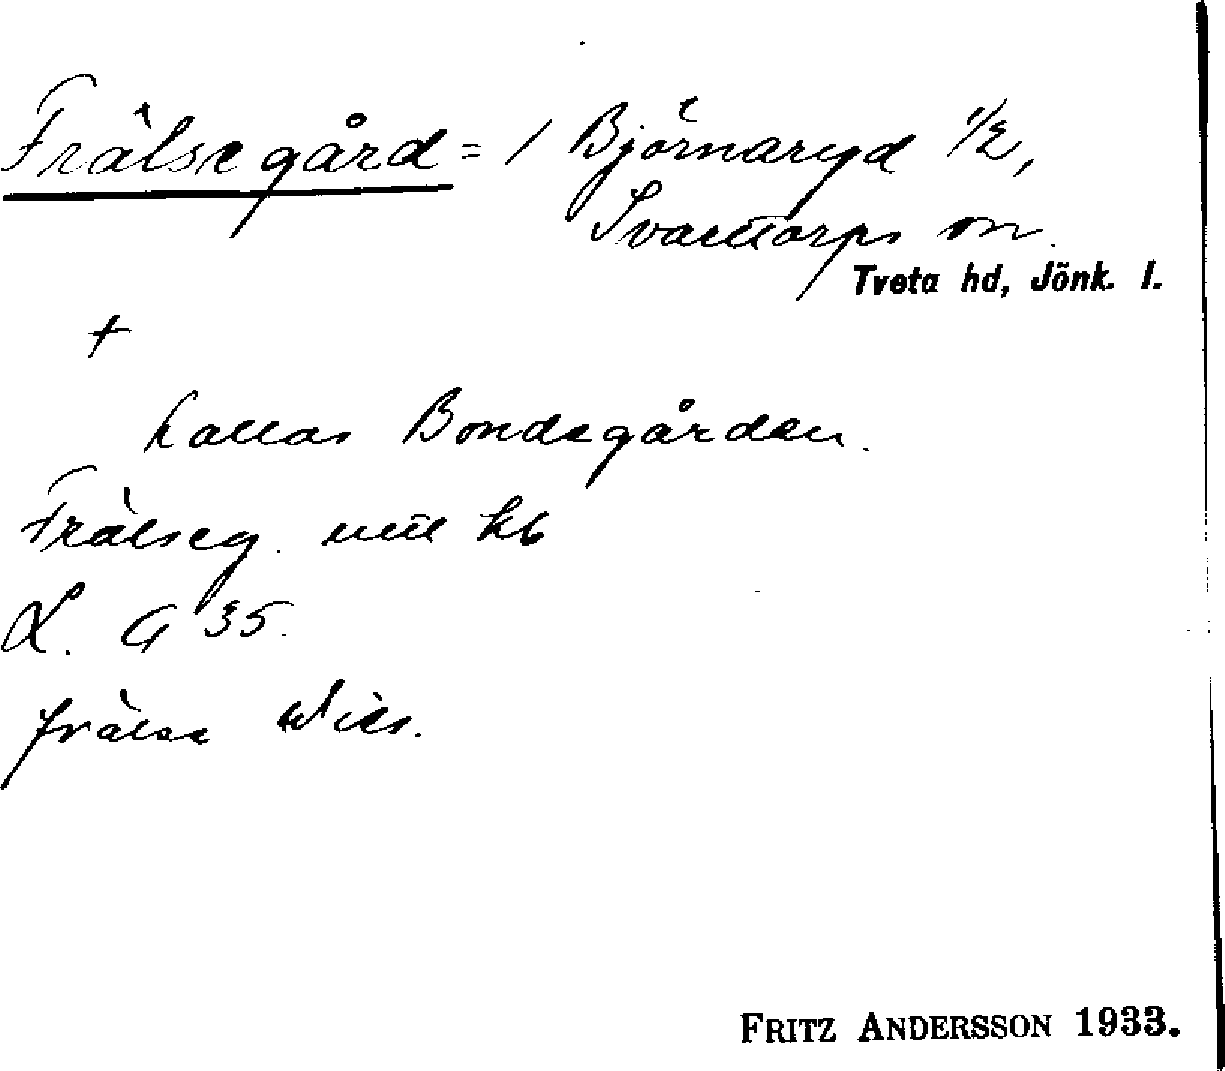 Frälsegård = / Björnaryd 1/2,
Svarttorps sn.
Tveta hd, Jönk. l.
+
kallas Bondegården.
Frälseg. utu kb
L. G 35.
frälse
FRITZ ANDERSSON 1933.